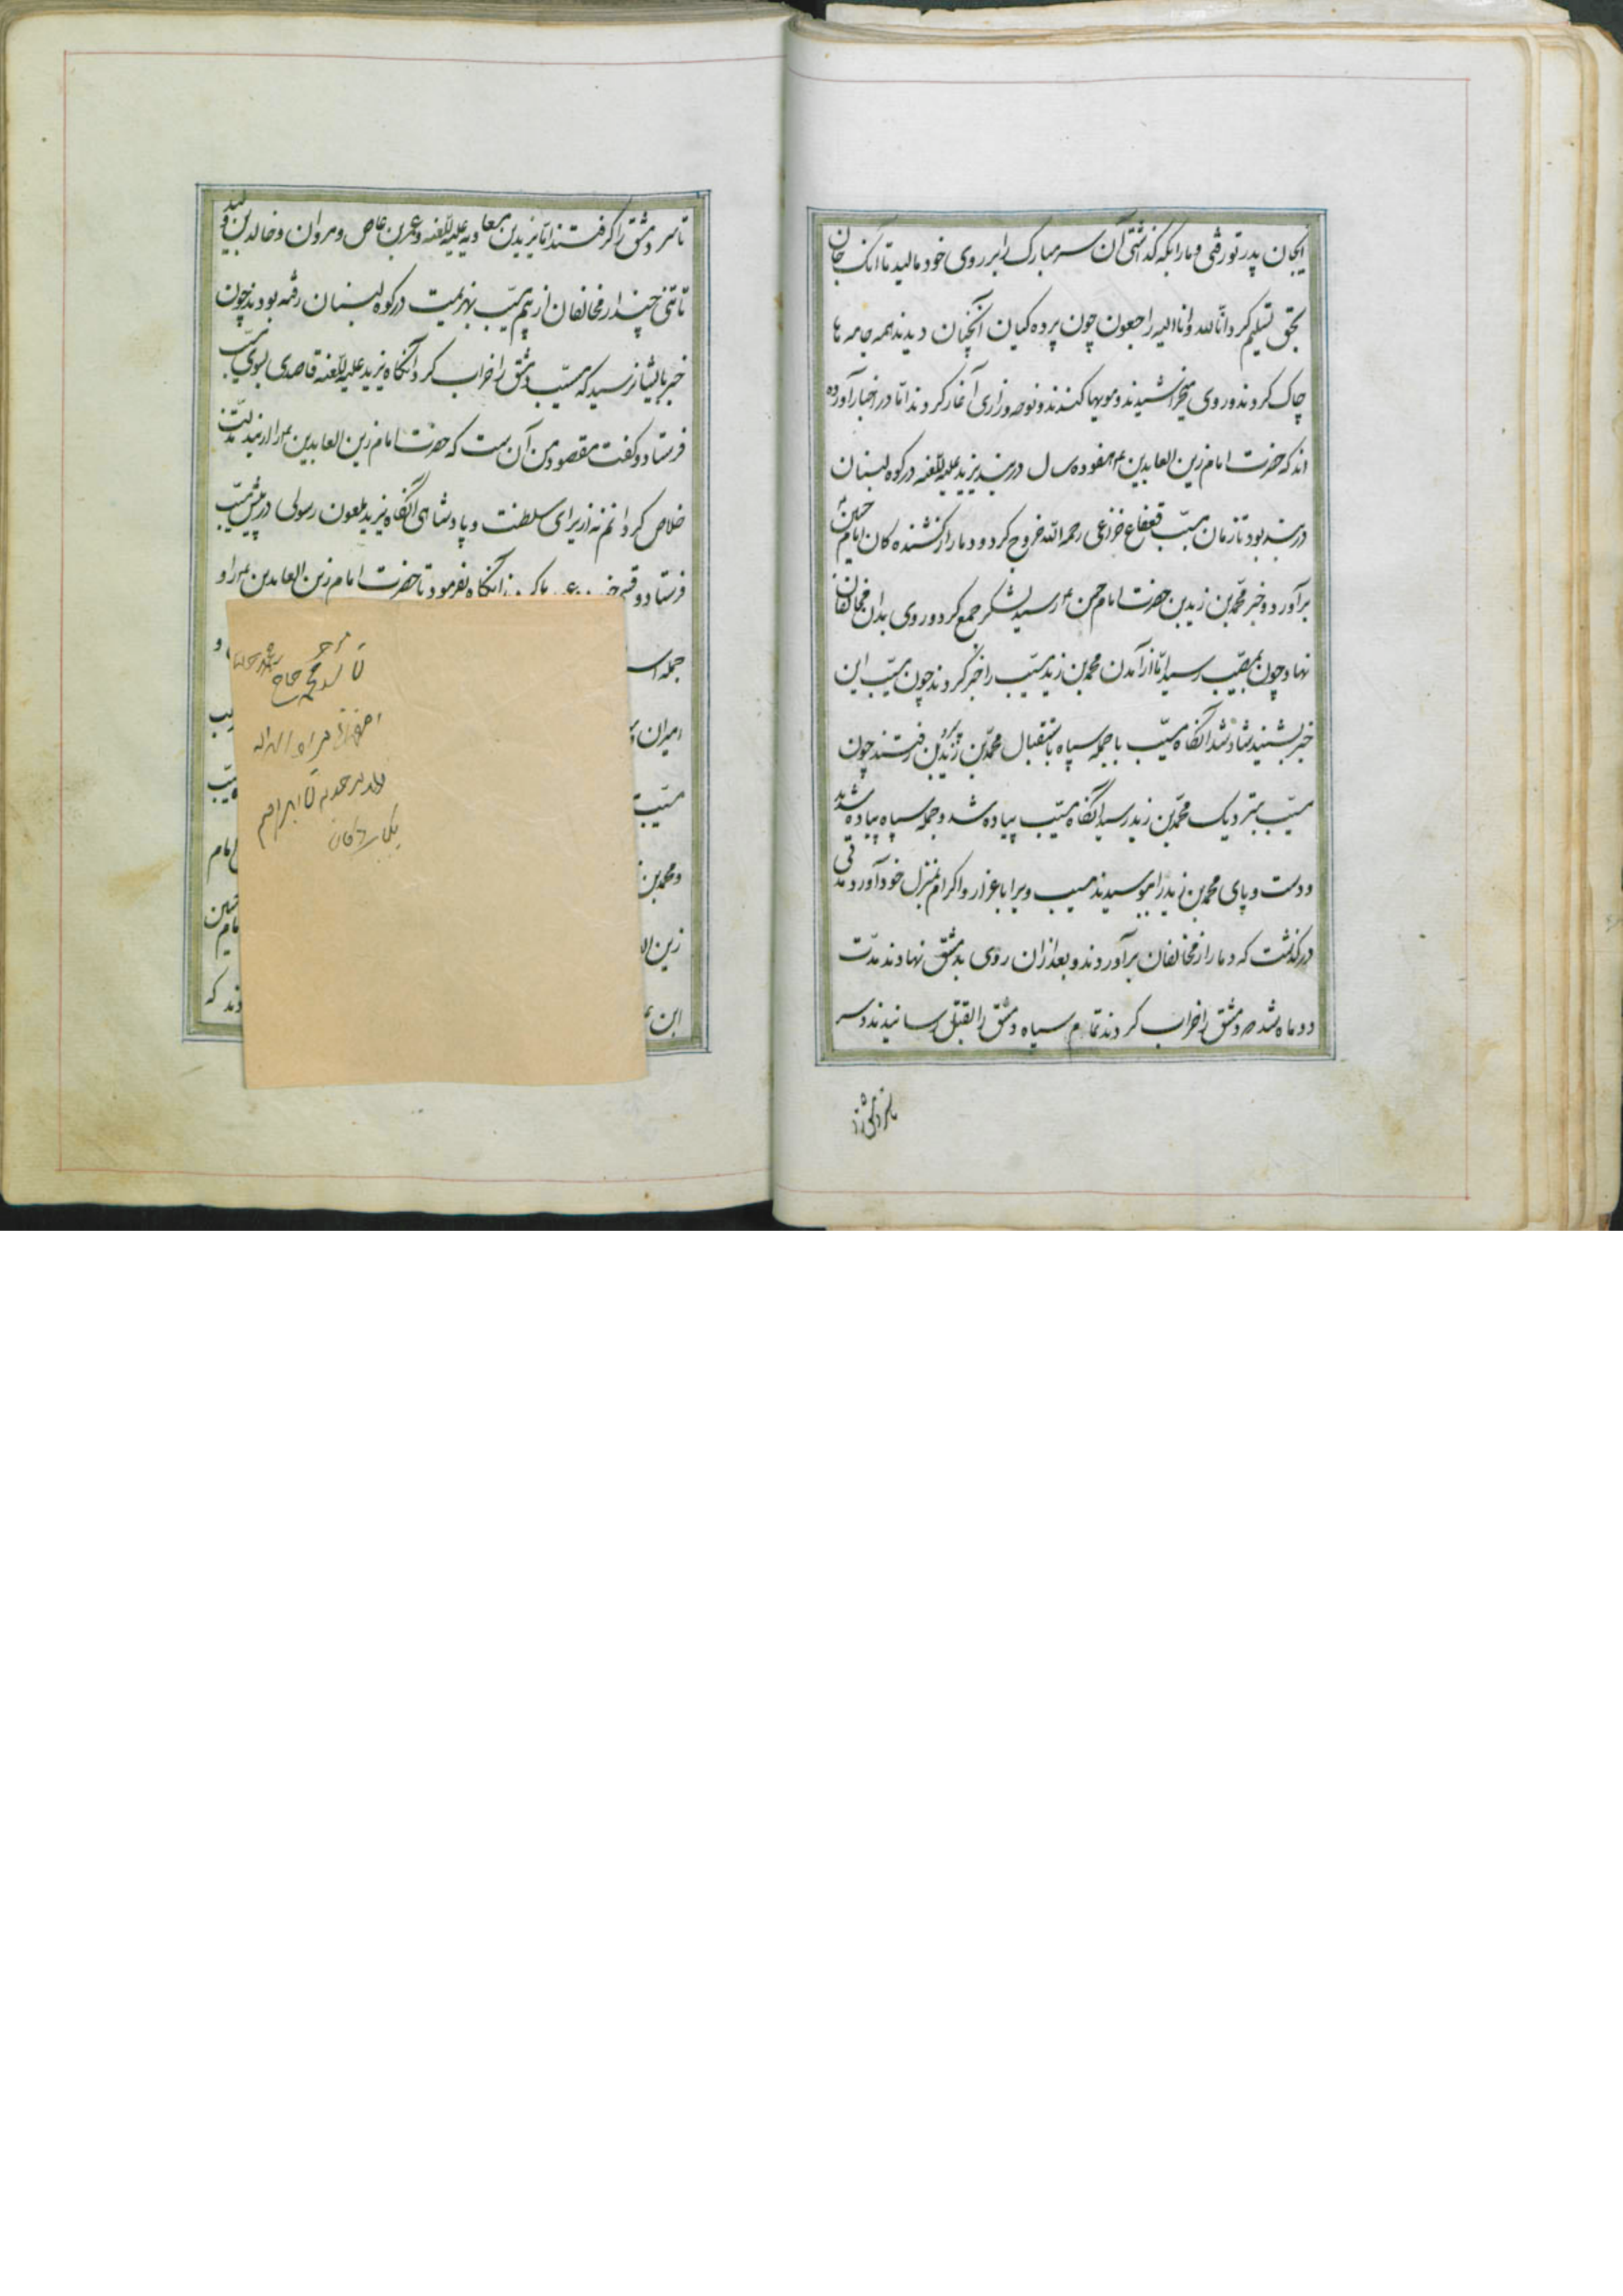 ایجان پدر تو رفتی و ما را بکه گذاشتی آن سر مبارک را بر روی خود مالید تا آنک جان
بحق تسلیم کرد انا لله و انا الیه راجعون چون پرده کیان آنچنان دیدند همه جامه ها
چاک کردند و روی میخراشیدند و مویها کندند و نوحه و زاری آغاز کردند اما در اخبار آورده
اند که حضرت امام زین العابدین ع هفده سال در بند یزید علیه اللعنه در کوه لبنان
در بند بود تا زمان مسیب قعقاع خزاعی رحمه الله خروج کرد و دمار از کشنده کان امام حسین ع
برآورد و خبر محمد بن زید بن حضرت امام حسن ع رسید لشکر جمع کرد و روی بدان مخالفان
نهاد چون بمصیب رسید اما از آمدن محمد بن زید مسیب را خبر کردند چون مسیب این
خبر بشنید شاد شد آنگاه مسیب با جمله سپاه باستقبال محمد بن زید بن رفتند چون
مسیب بنزدیک محمد بن زید رسید آنگاه مسیب پیاده شد و جمله سپاه پیاده شدند
و دست و پای محمد بن زید را بوسیدند مسیب ویرا با عزاز و اکرام بمنزل خود آورد مدتی
در گذشت که دمار از مخالفان برآوردند و بعد از آن روی بدمشق نهادند مدت
دو ماه شد و دمشق را خراب کردند تمام سپاه دمشق را بقتل رسانیدند و سر
تا سر دمشق را گرفتند اما یزید بن معاویه علیه اللعنه و عمر بن عاص و مروان و خالد بن ولید
تا تنی چند از مخالفان از بیم مسیب بهزیمت در کوه لبنان رفته بودند چون
خبر بایشان رسید که مسیب دمشق را خراب کرد آنگاه یزید علیه اللعنه قاصدی بسوی مسیب
فرستاد و گفت مقصود من آن است که حضرت امام زین العابدین ع را از بند
خلاص کردانم نه از برای سلطنت و پادشاهی آنگاه یزید ملعون رسولی در پیش مسیب
فرستاد و آنگاه بفرمود تا حضرت امام زین العابدین ع را و
جمله و
امیران
مسیب
و محمد بن امام
زین
این دند که